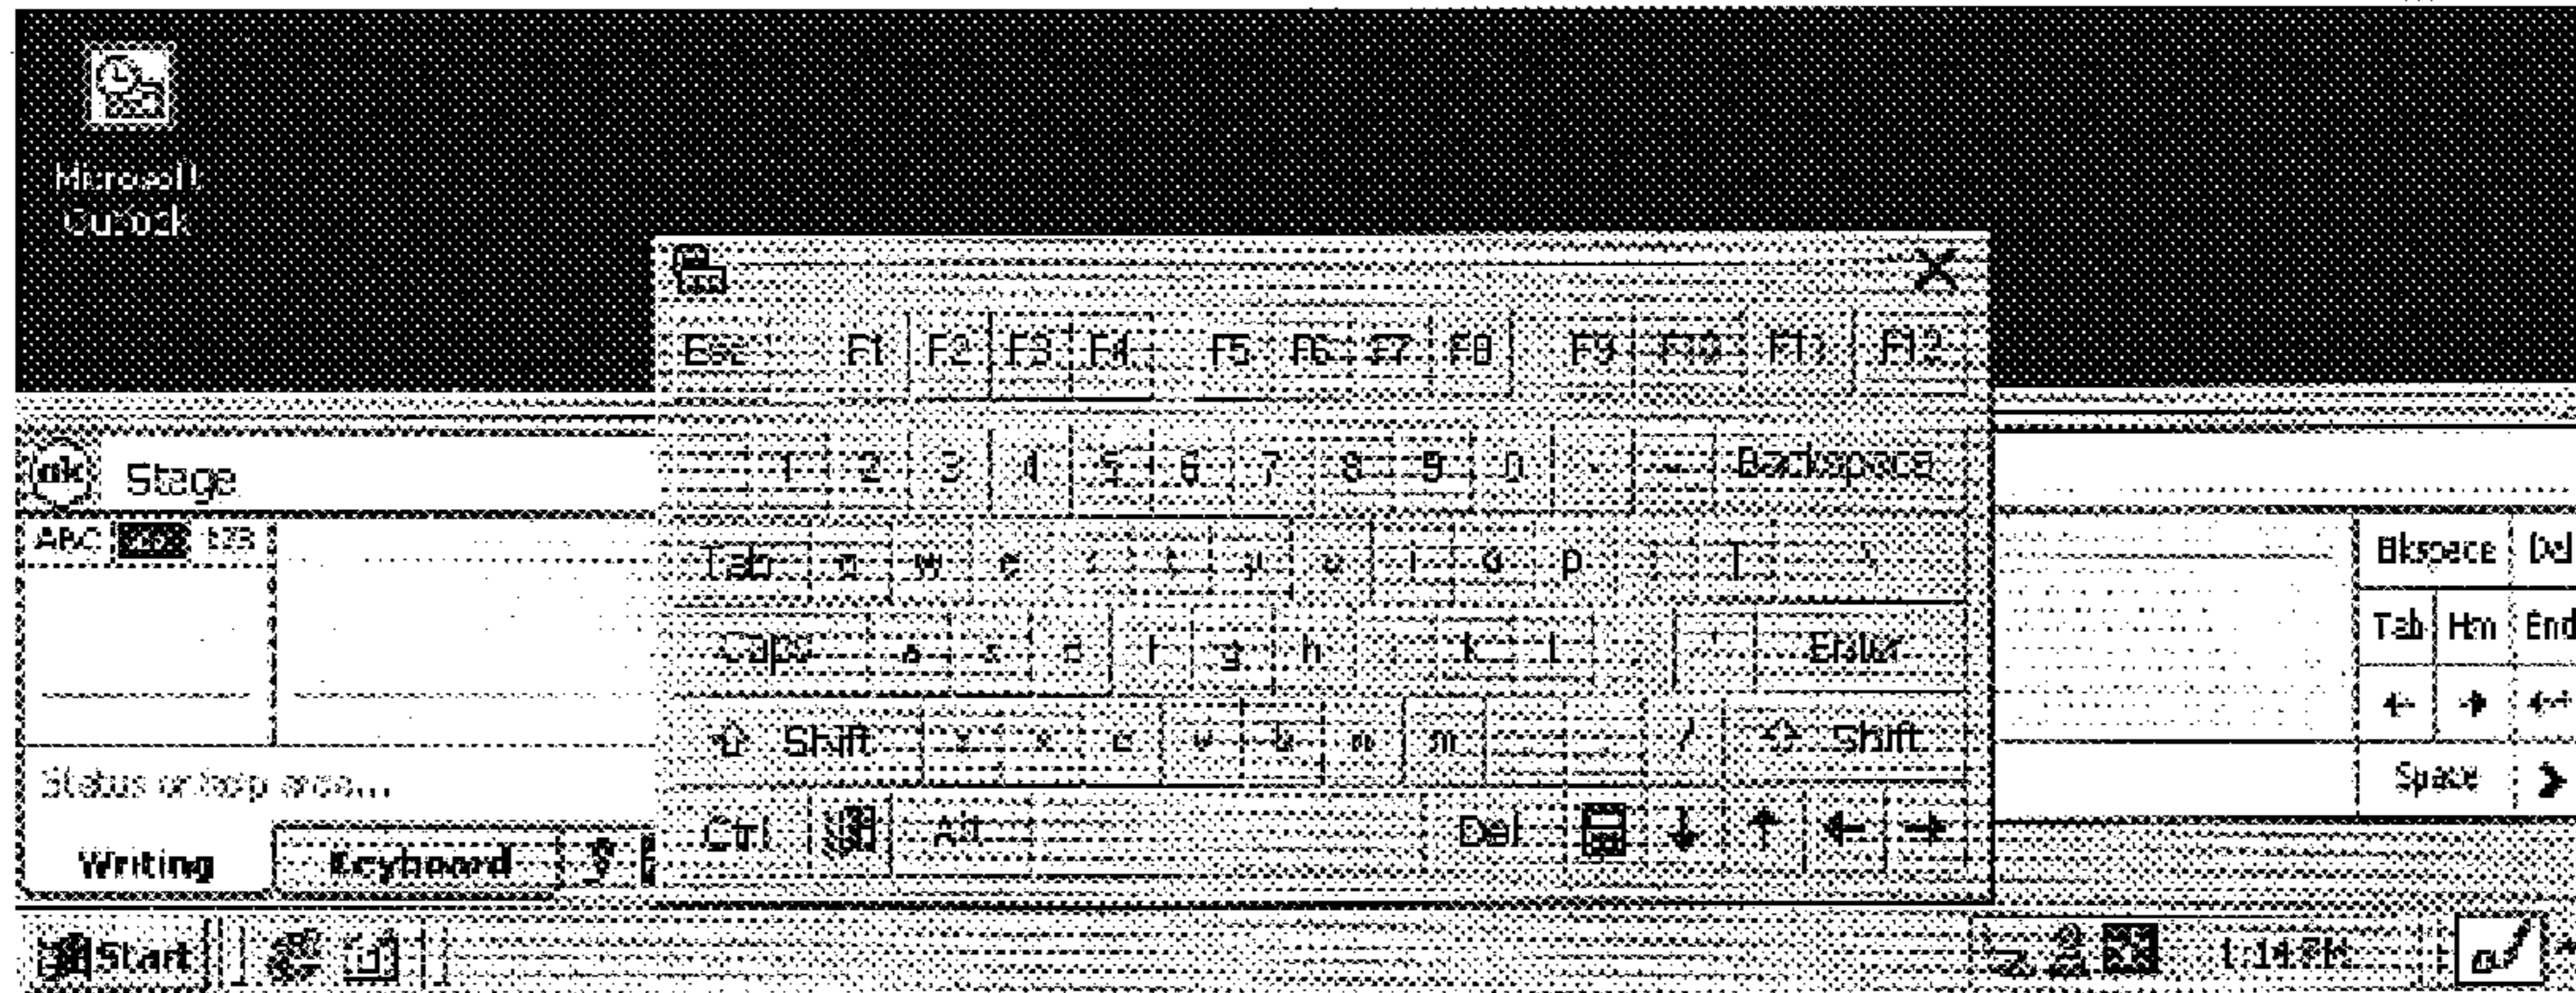 Microsoft
Outlook
Esc F1 F2 F3 F4 F5 F6 F7 F8 F9 F10 F11 F12
1 2 3 4 5 6 7 8 9 0 - = Backspace
Tab q w e r t y u i o p [ ] \
Caps a s d f g h k l ; ' Enter
Shift z x c v b n m , . / Shift
Ctrl Alt Del ↓ ↑ ← →
ok Stage
ABC abc 123
Status or help area...
Writing Keyboard
Bkspace Del
Tab Hm End
← →
Space
Start 1:14 PM